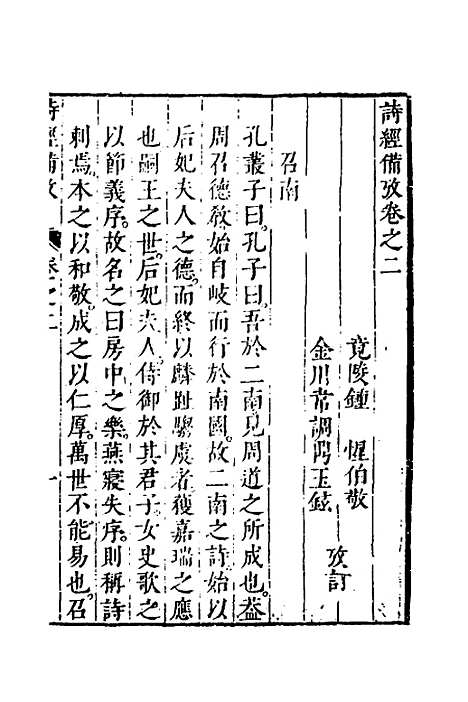 詩經備攷卷之二
竟陵鍾 惺伯敬
金川韋調鼎玉鉉
攷訂
召南
孔叢子曰孔子曰吾於二南見周道之所成也。葢
周召德教始自岐而行於南國。故二南之詩始以
后妃夫人之德。而終以麟趾騶虞者獲嘉瑞之應
也嗣王之世。后妃夫人侍御於其君子。女史歌之
以節義序。故名之曰房中之樂。燕寢失序。則稱詩
刺焉。本之以和敬。成之以仁厚。萬世不能易也。召
詩經備攷 卷之二 一